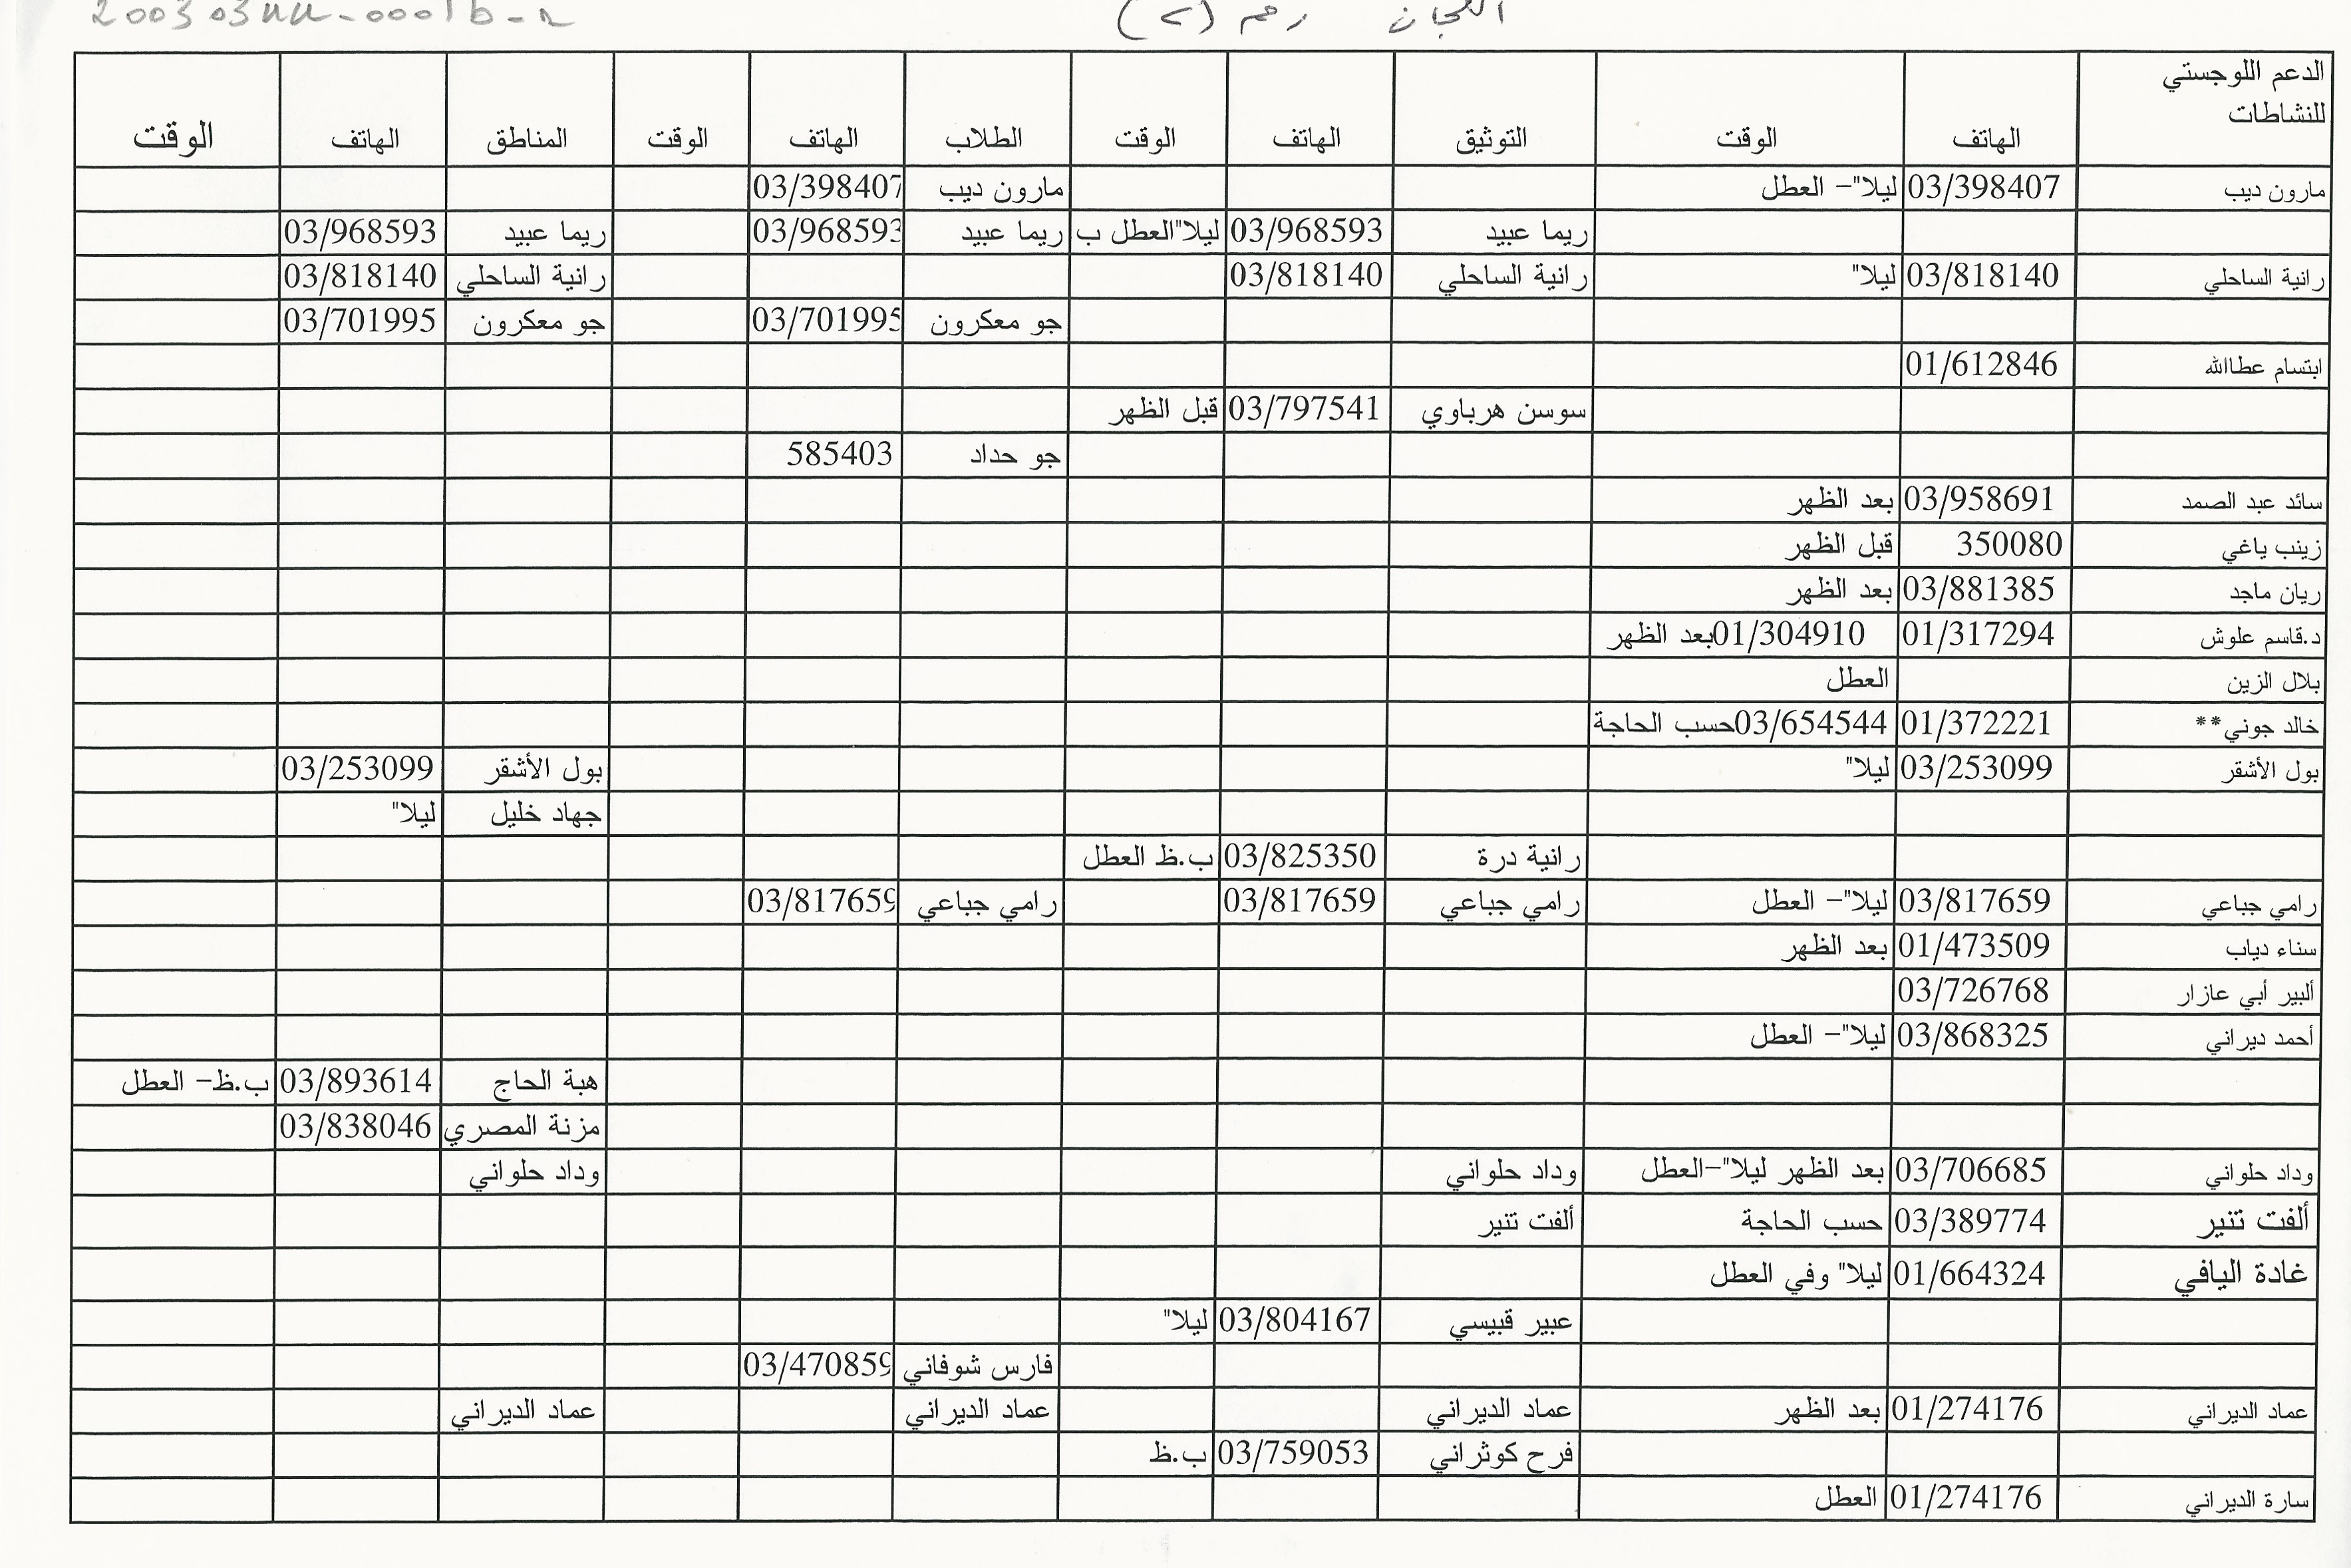 اللجان رقم (2)
الدعم اللوجستي للنشاطات الهاتف الوقت التوثيق الهاتف الوقت الطلاب الهاتف الوقت المناطق الهاتف الوقت
مارون ديب 03/398407 ليلا"- العطل مارون ديب 03/398407
ريما عبيد 03/968593 ليلا"العطل ب ريما عبيد 03/968593 ريما عبيد 03/968593
رانية الساحلي 03/818140 ليلا" رانية الساحلي 03/818140 رانية الساحلي 03/818140
جو معكرون 03/701995 جو معكرون 03/701995
ابتسام عطاالله 01/612846
سوسن هرباوي 03/797541 قبل الظهر
جو حداد 585403
سائد عبد الصمد 03/958691 بعد الظهر
زينب ياغي 350080 قبل الظهر
ريان ماجد 03/881385 بعد الظهر
د.قاسم علوش 01/317294 01/304910بعد الظهر
بلال الزين العطل
خالد جوني** 01/372221 03/654544حسب الحاجة
بول الأشقر 03/253099 ليلا" بول الأشقر 03/253099
جهاد خليل ليلا"
رانية درة 03/825350 ب.ظ العطل
رامي جباعي 03/817659 ليلا"- العطل رامي جباعي 03/817659 رامي جباعي 03/817659
سناء دياب 01/473509 بعد الظهر
ألبير أبي عازار 03/726768
أحمد ديراني 03/868325 ليلا"- العطل
هبة الحاج 03/893614 ب.ظ- العطل
مزنة المصري 03/838046
وداد حلواني 03/706685 بعد الظهر ليلا"-العطل وداد حلواني وداد حلواني
ألفت تنير 03/389774 حسب الحاجة ألفت تنير
غادة اليافي 01/664324 ليلا" وفي العطل
عبير قبيسي 03/804167 ليلا"
فارس شوفاني 03/470859
عماد الديراني 01/274176 بعد الظهر عماد الديراني عماد الديراني عماد الديراني
فرح كوثراني 03/759053 ب.ظ
سارة الديراني 01/274176 العطل